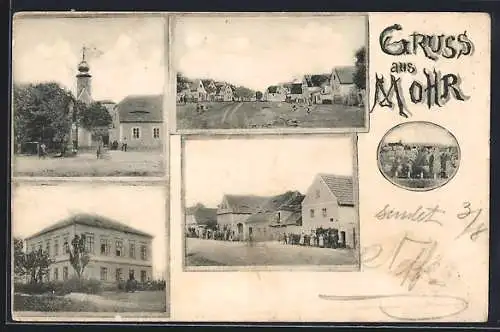 GRUSS
aus
MOHR
sendet 3/8